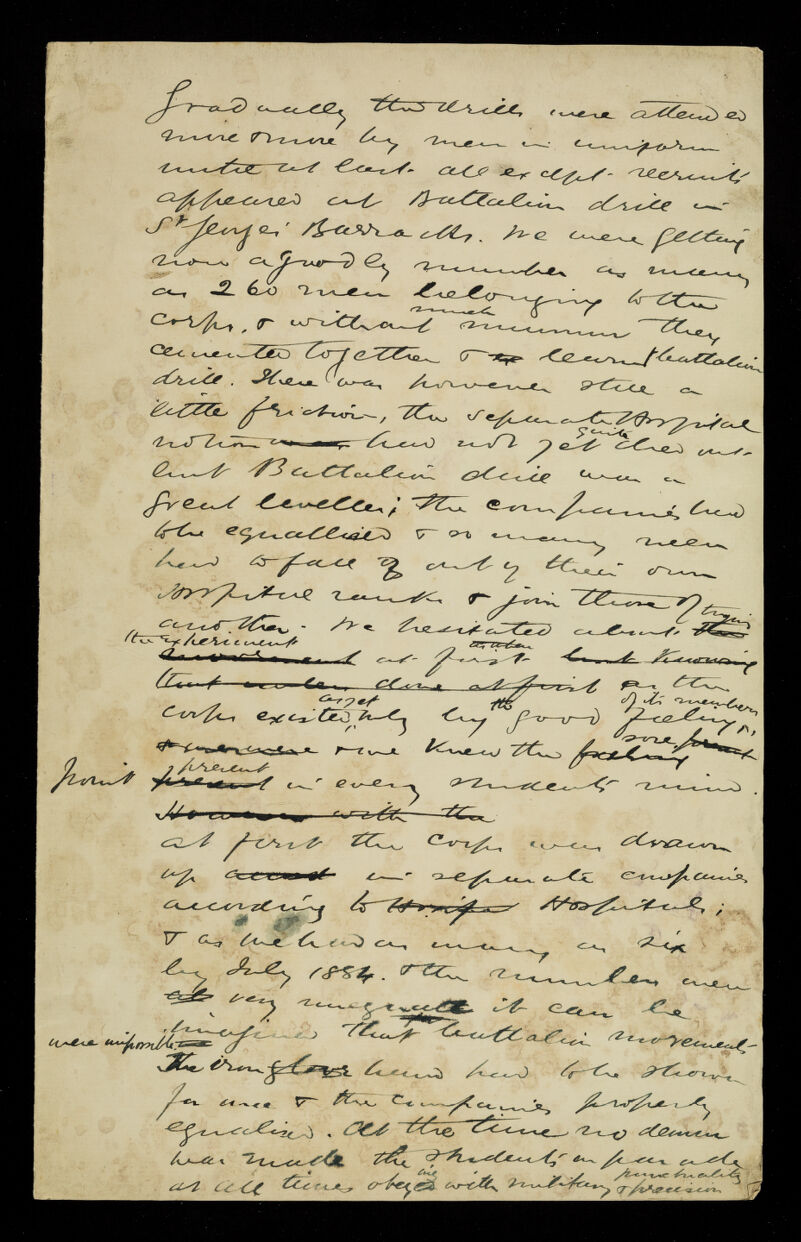 Gradually the drills were attended
more & more by men in uniform
until at last all except recruits
appeared at Battalion drill in
St Georges Barracks. We were getting
now a goodly number as many
as 260 men belonging to the
corps, & without much murmur they
cemented together & learned battalion
drill. There was however still a
little friction, the separate Hospital
notion had not yet quite died out
but Battalion drill was a
great leveller; the companies had
to be equallized & so many men
had to fall out of their own
Hospital ranks & join those of
another. We hesitated about trying the
the experiment
movement at first but knowing
that when done at first as the
corps existed as yet only by the good feeling of its members
& we knew the feeling sore
point present in every students mind.
However with the
at first the corps was drawn
up in separate companies
according to Hospitals;
& as we had as many as six
by July 1884. & the numbers were
very unequal it can be
imagined that battalion movements
were impossible
The iron glove hand had to be shown
for once & the companies properly
equalised. At the time no demur
was made the students on parade
at all times obeyed with military punctuality & precision